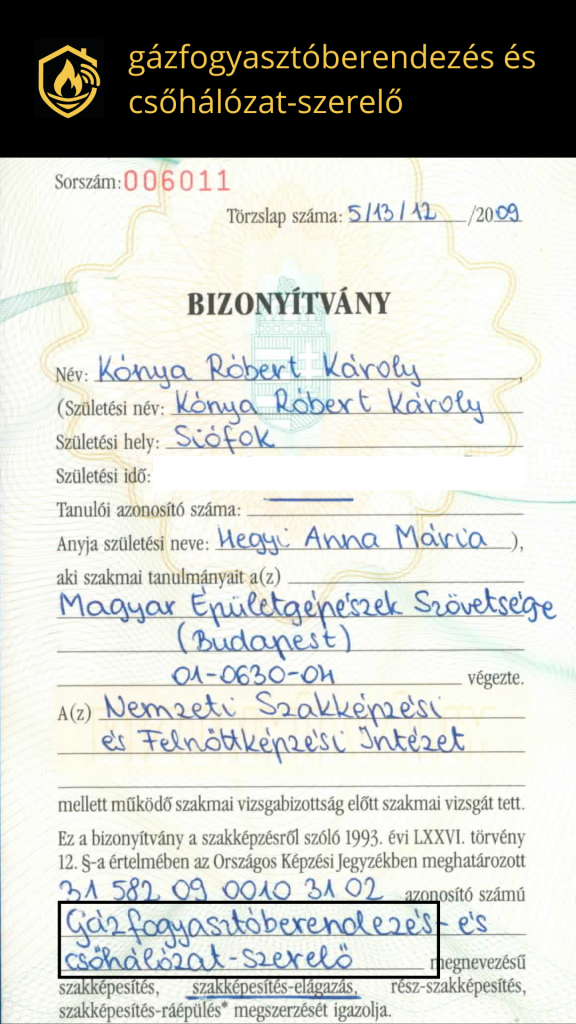 gázfogyasztóberendezés és
csőhálózat-szerelő
Sorszám: 006011
Törzslap száma: 5/13/12 /2009
BIZONYÍTVÁNY
Név: Kónya Róbert Károly,
(Születési név: Kónya Róbert Károly
Születési hely: Siófok
Születési idő:
Tanulói azonosító száma:
Anyja születési neve: Hegyi Anna Mária ),
aki szakmai tanulmányait a(z)
Magyar Épületgépészek Szövetsége
(Budapest)
01-0630-04 végezte.
A(z) Nemzeti Szakképzési
és Felnőttképzési Intézet
mellett működő szakmai vizsgabizottság előtt szakmai vizsgát tett.
Ez a bizonyítvány a szakképzésről szóló 1993. évi LXXVI. törvény
12. §-a értelmében az Országos Képzési Jegyzékben meghatározott
31 582 09 0010 31 02 azonosító számú
Gázfogyasztóberendezés- és
csőhálózat-szerelő megnevezésű
szakképesítés, szakképesítés-elágazás, rész-szakképesítés,
szakképesítés-ráépülés* megszerzését igazolja.